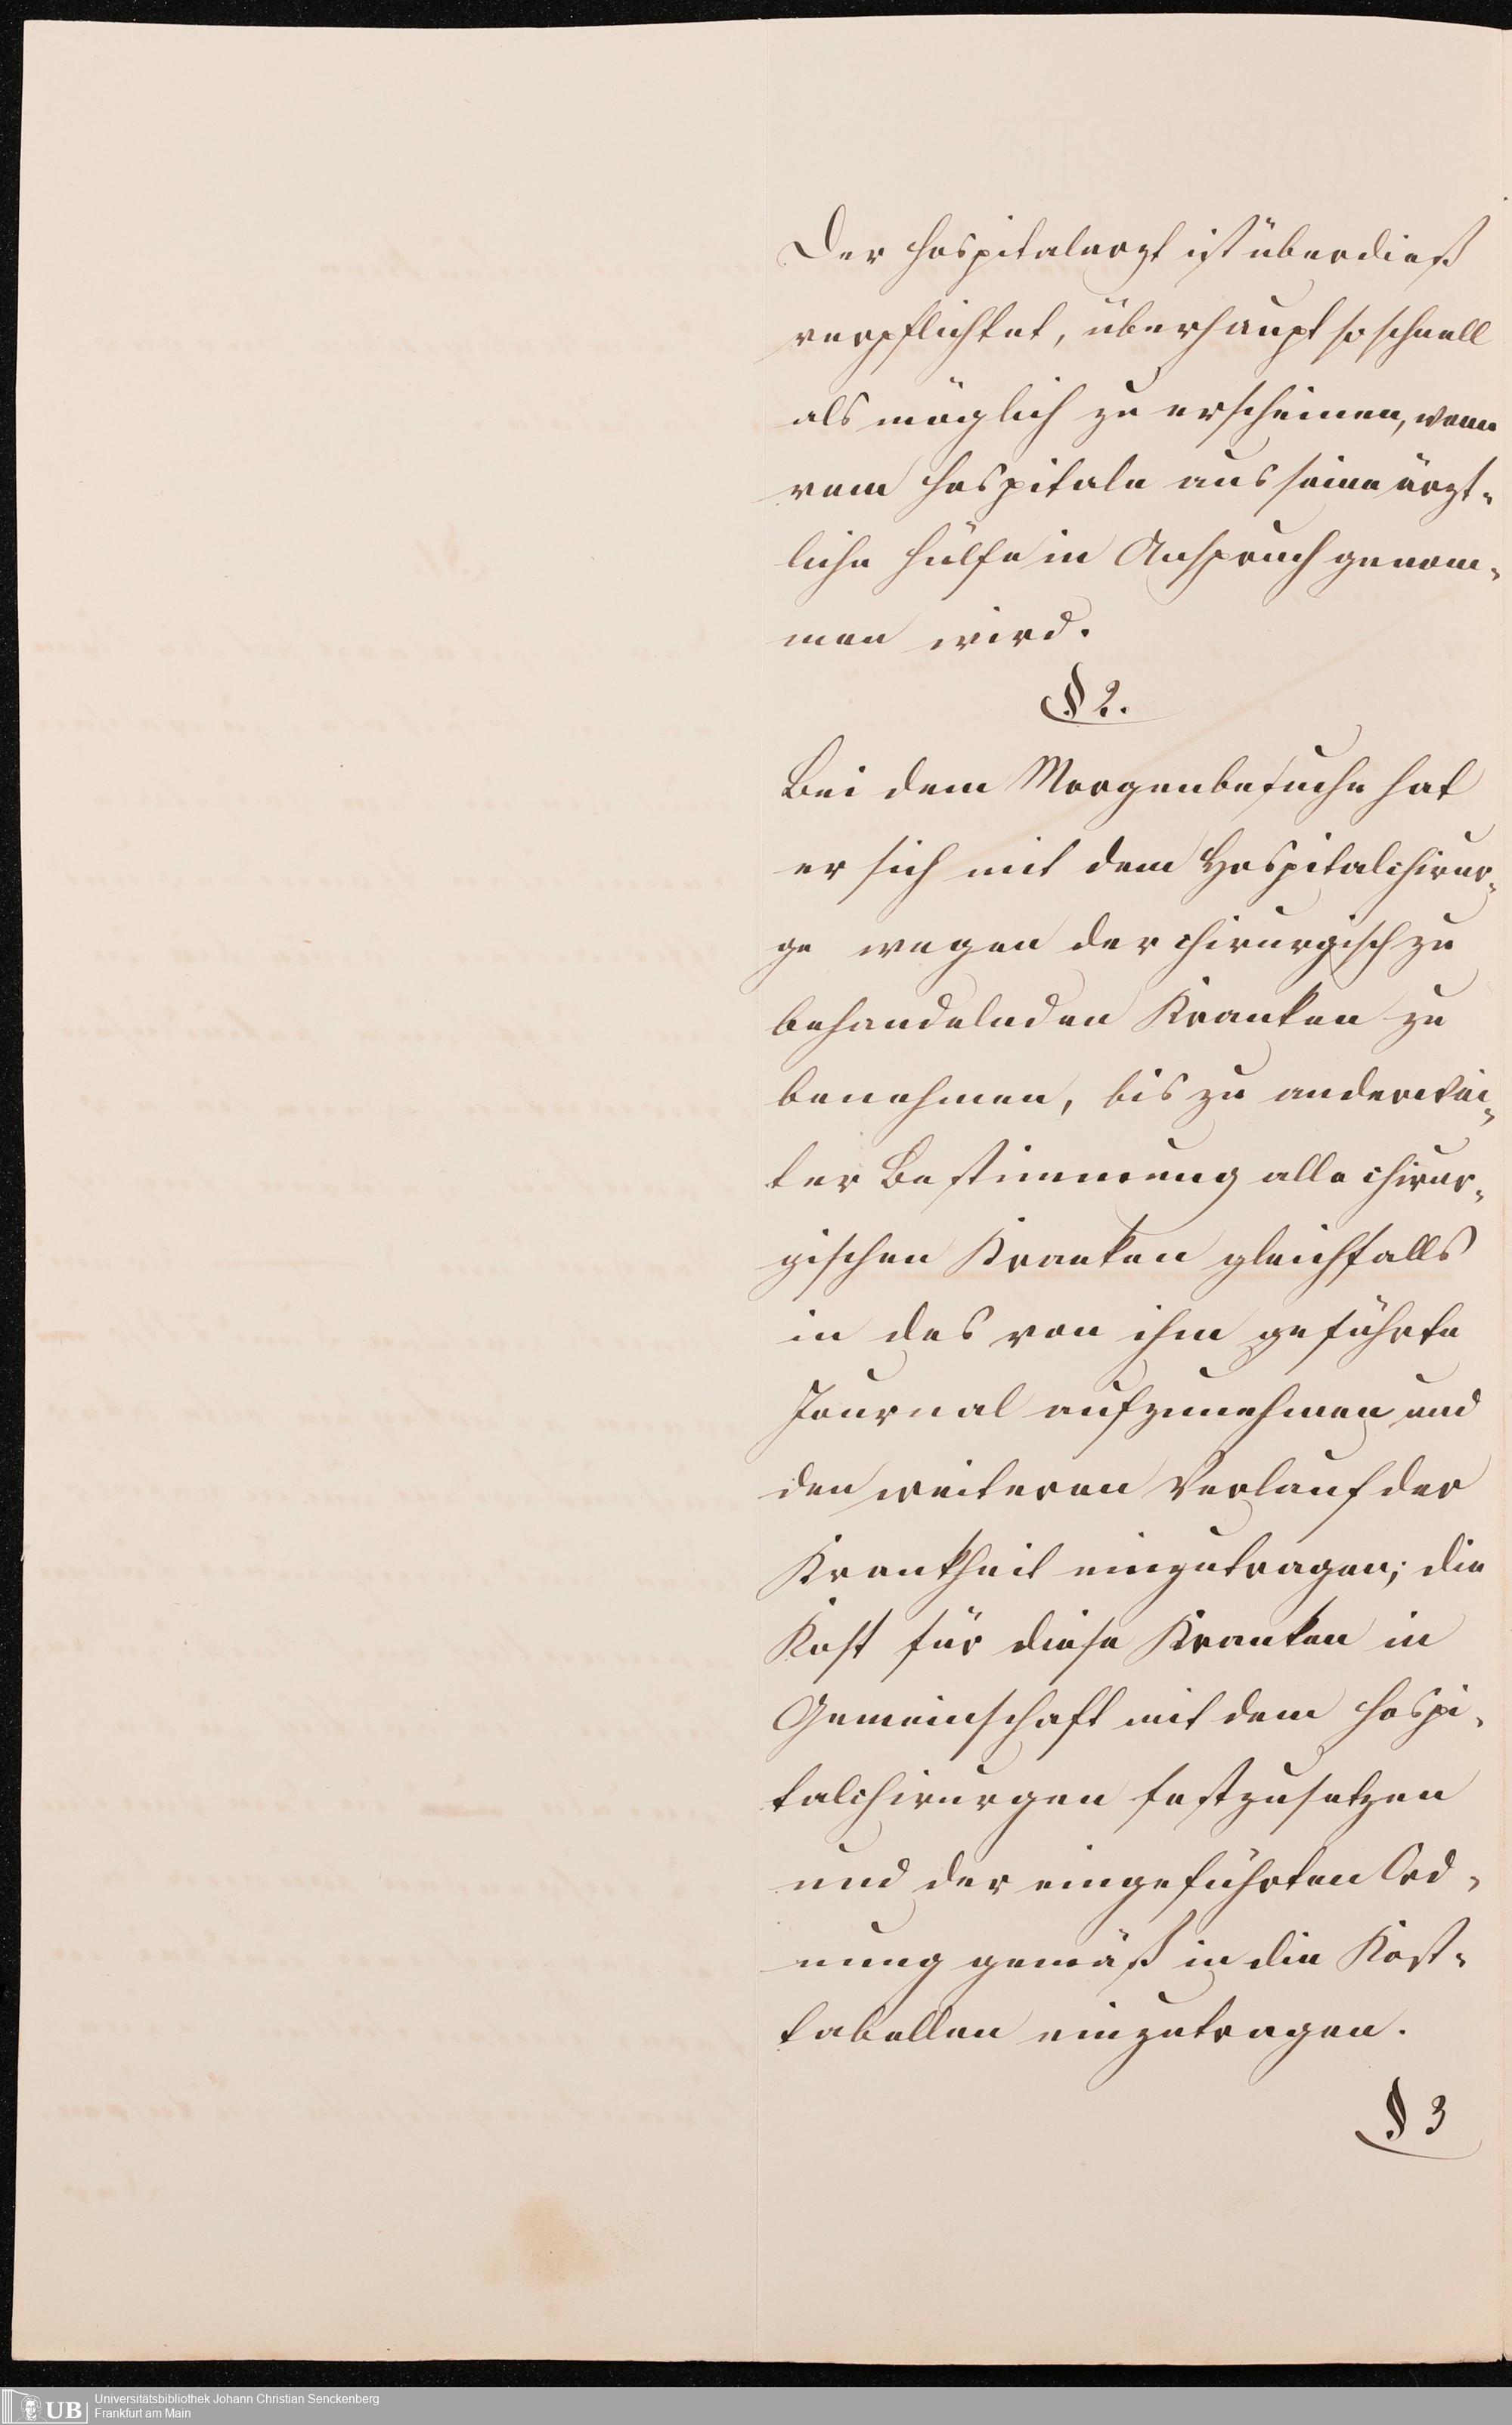 Der Hospitalarzt ist überdieß
verpflichtet, überhaupt so schnell
als möglich zu erscheinen, wenn
vom Hospitale aus seine ärzt-
liche Hülfe in Anspruch genom-
men wird.
§ 2.
Bei dem Morgenbesuche hat
er sich mit dem Hospitalchirur-
ge wegen der chirurgisch zu
behandelnden Kranken zu
benehmen, bis zu anderwei-
ter Bestimmung alle chirur-
gischen Kranken gleichfalls
in das von ihm geführte
Journal aufzunehmen und
den weiteren Verlauf der
Krankheit einzutragen; die
Kost für diese Kranken in
Gemeinschaft mit dem Hospi-
talchirurgen festzusetzen
und der eingeführten Ord-
nung gemäß in die Kost-
tabellen einzutragen.
§ 3
UB
Universitätsbibliothek Johann Christian Senckenberg
Frankfurt am Main